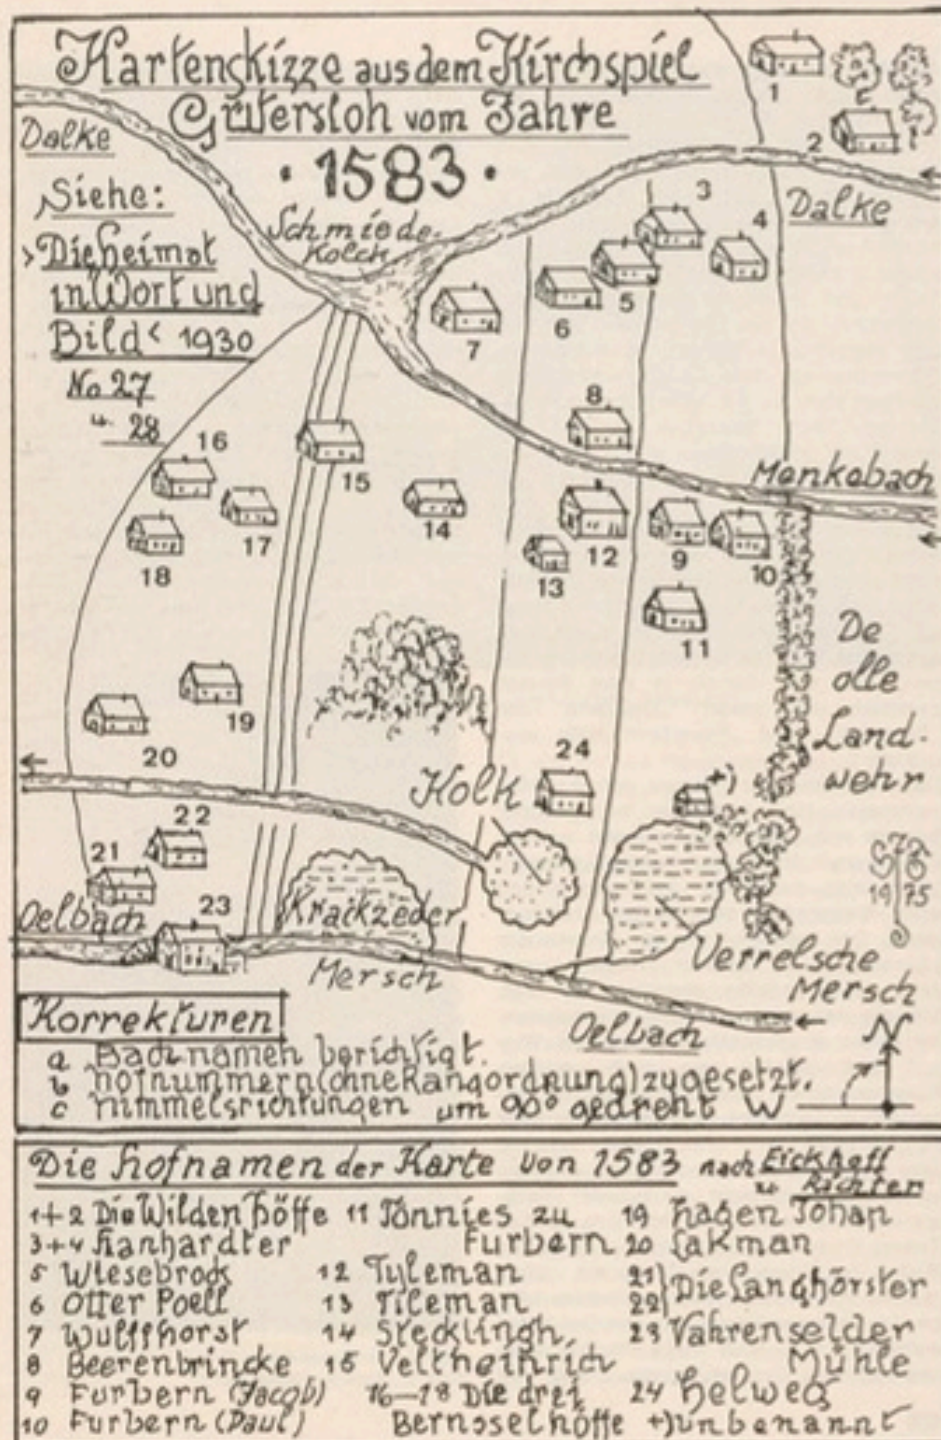 Kartenskizze aus dem Kirchspiel
Gütersloh vom Jahre
· 1583 ·
Dalke
Siehe:
>Die Heimat
in Wort und
Bild< 1930
No 27
u. 28
Schmiede-
Kolck
Dalke
1
2
3
4
5
6
7
8
Menkebach
16
15
17
14
18
13
12
9
10
11
De
olle
Land-
wehr
19
20
Kolk
24
+)
22
21
23
Oelbach
Krackzeder
Mersch
Verrelsche
Mersch
1975
Oelbach
N
W
Korrekturen
a Bachnamen berichtigt.
b Hofnummern (ohne Rangordnung) zugesetzt.
c Himmelsrichtungen um 90° gedreht
Die Hofnamen der Karte von 1583 nach Eickhoff
u. Richter
1+2 Die Wilden Höffe
3+4 Hanhardter
5 Wiesebrock
6 Otter Poell
7 Wulffhorst
8 Beerenbrincke
9 Furbern (Jacob)
10 Furbern (Paul)
11 Tönnies zu
Furbern
12 Tyleman
13 Tileman
14 Stecklingh,
15 Veltheinrich
16–18 Die drei
Bernsselhöffe
19 Hagen Johan
20 Lakman
21
22 } Die Langhörster
23 Vahrenselder
Mühle
24 Helweg
+) unbenannt